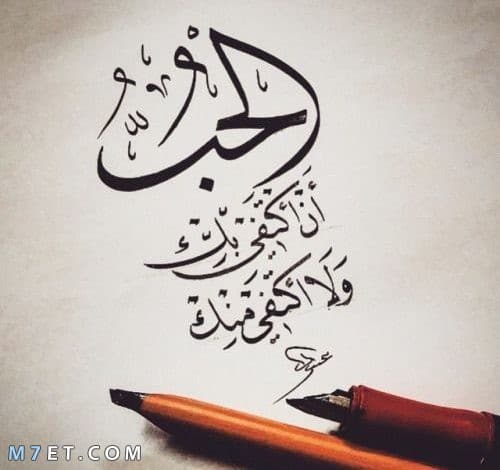 الحُبُّ
أَن أَكْتَفِيَ بِكِ
وَلَا أَكْتَفِيَ مِنْكِ
M7ET.COM